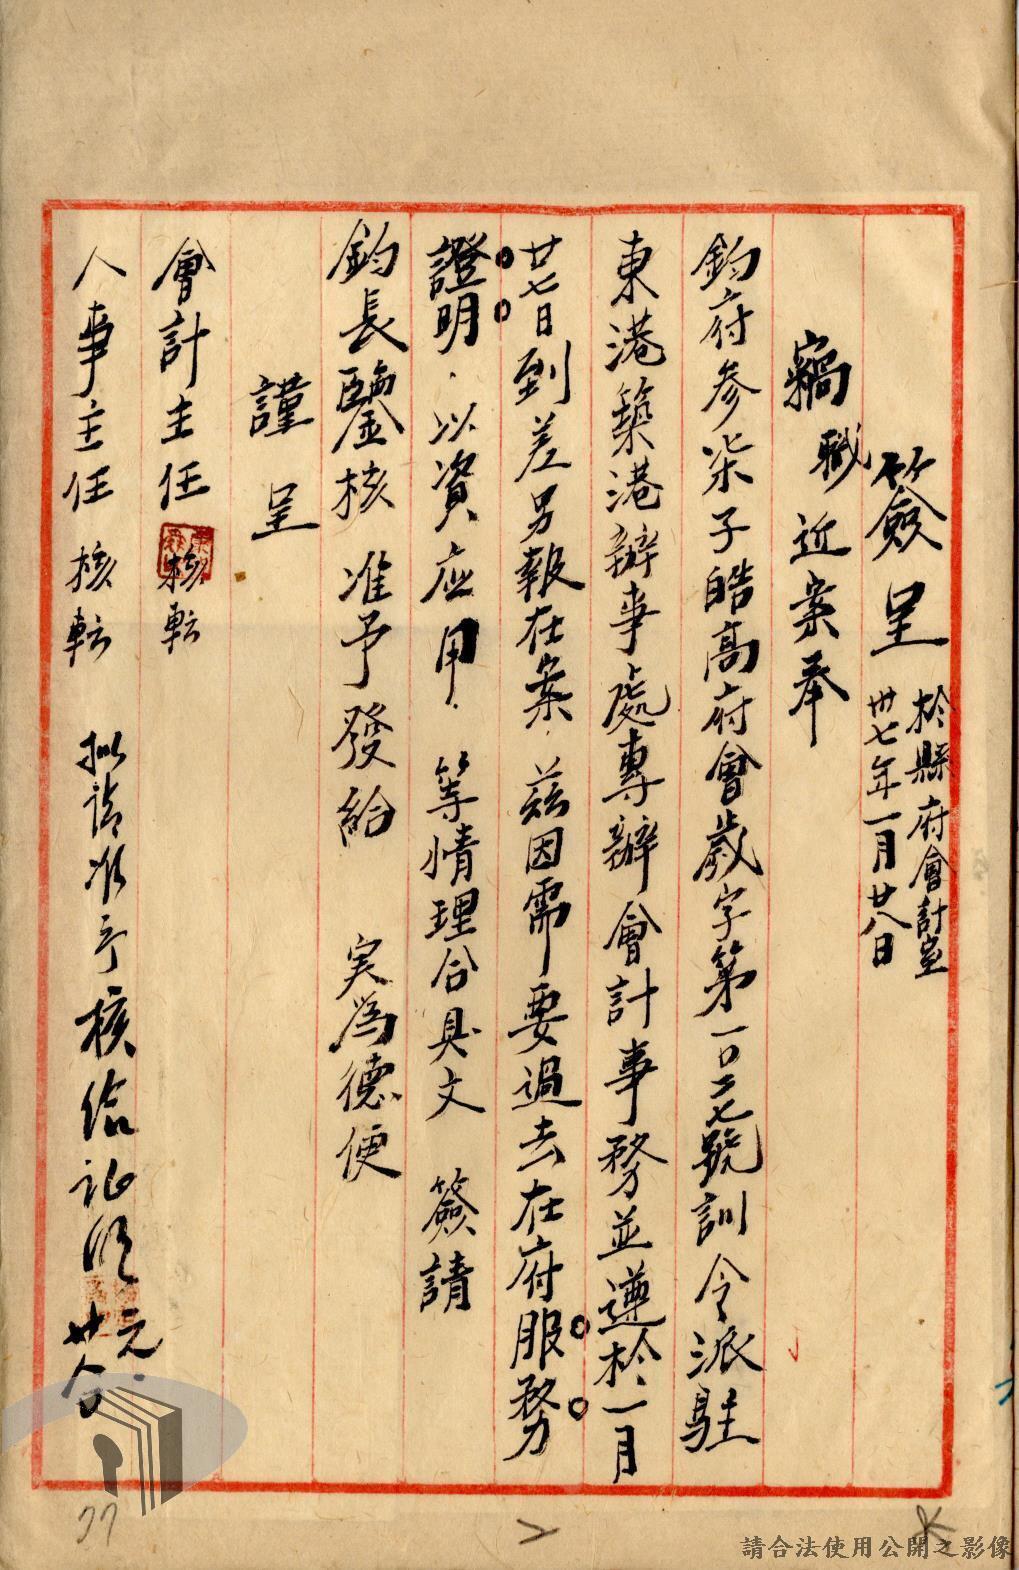 簽呈
於縣府會計室
卅七年一月廿八日
竊職近案奉
鈞府參柒子皓高府會歲字第一〇二七號訓令派駐
東港築港辦事處專辦會計事務並遵於一月
廿七日到差另報在案．茲因需要過去在府服務
證明．以資應用．等情理合具文 簽請
鈞長鑒核准予發給 実為德便
謹呈
會計主任 核転
人事主任 核転 拟請准予核给证明
元．
77
請合法使用公開之影像